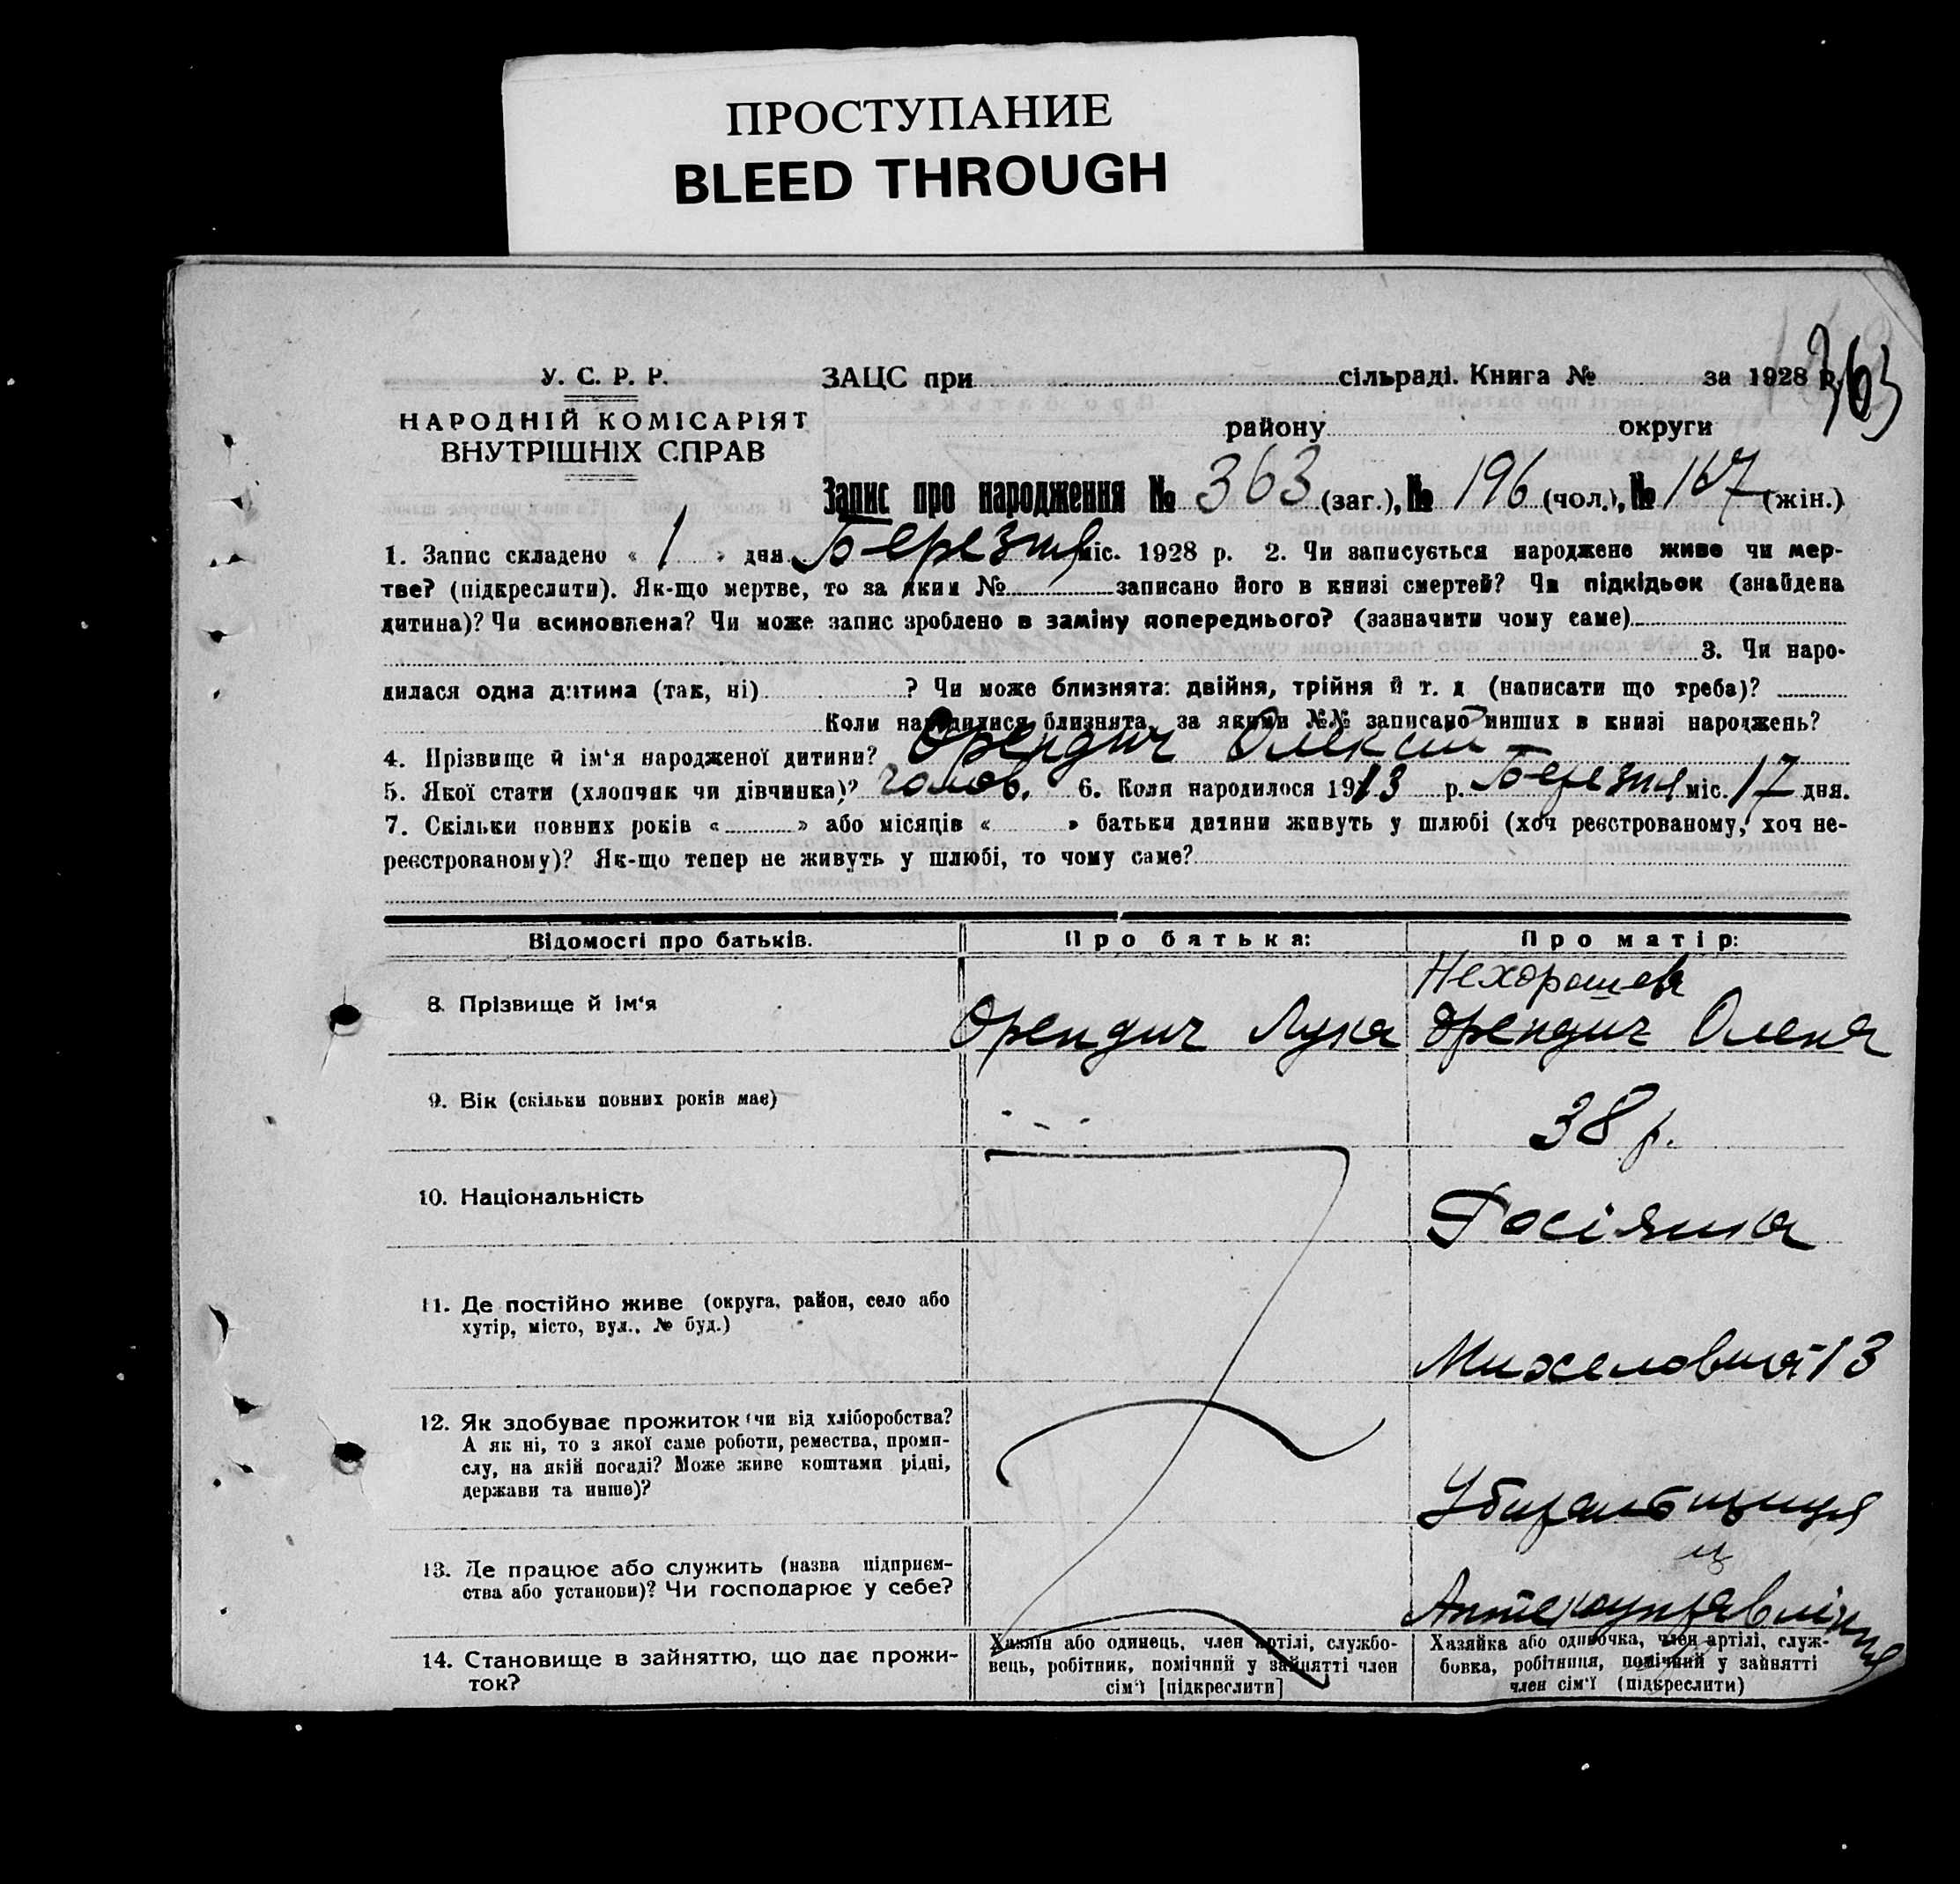 ПРОСТУПАНИЕ
BLEED THROUGH
363
У. С. Р. Р.
НАРОДНІЙ КОМІСАРІЯТ
ВНУТРІШНІХ СПРАВ
ЗАЦС при сільраді. Книга № за 1928 р.
району округи
Запис про народження № 363 (заг.), № 196 (чол.), № 167 (жін.)
1. Запис складено « 1 » дня Березня міс. 1928 р. 2. Чи записується народжене живе чи мер-
тве? (підкреслити). Як-що мертве, то за яким № записано його в книзі смертей? Чи підкідьок (знайдена
дитина)? Чи всиновлена? Чи може запис зроблено в заміну попереднього? (зазначити чому саме)
3. Чи наро-
дилася одна дитина (так, ні) ? Чи може близнята: двійня, трійня й т. д (написати що треба)?
Коли народилися близнята, за якими №№ записано инших в книзі народжень?
4. Прізвище й ім‘я народженої дитини? Орендич Олексій
5. Якої стати (хлопчик чи дівчинка)? чолов. 6. Коли народилося 1913 р. Березня міс. 17 дня.
7. Скільки повних років « » або місяців « » батьки дитини живуть у шлюбі (хоч реєстрованому, хоч не-
реєстрованому)? Як-що тепер не живуть у шлюбі, то чому саме?
Відомості про батьків. Про батька: Про матір:
Нехорошева
8. Прізвище й ім‘я Орендич Лука Орендич Олена
9. Вік (скільки повних років має) 38 р.
10. Національність Росіянка
11. Де постійно живе (округа, район, село або
хутір, місто, вул., № буд.)
13
12. Як здобуває прожиток (чи від хліборобства?
А як ні, то з якої саме роботи, ремества, проми-
слу, на якій посаді? Може живе коштами рідні,
держави та инше)?
Убиральщиця
13. Де працює або служить (назва підприєм-
ства або установи)? Чи господарює у себе?
Аптекоуправління
14. Становище в зайняттю, що дає прожи-
ток?
Хазяїн або одинець, член артілі, службо-
вець, робітник, помічний у зайнятті член
сім‘ї [підкреслити]
Хазяйка або одиночка, член артілі, служ-
бовка, робітниця, помічний у зайнятті
член сім‘ї (підкреслити)